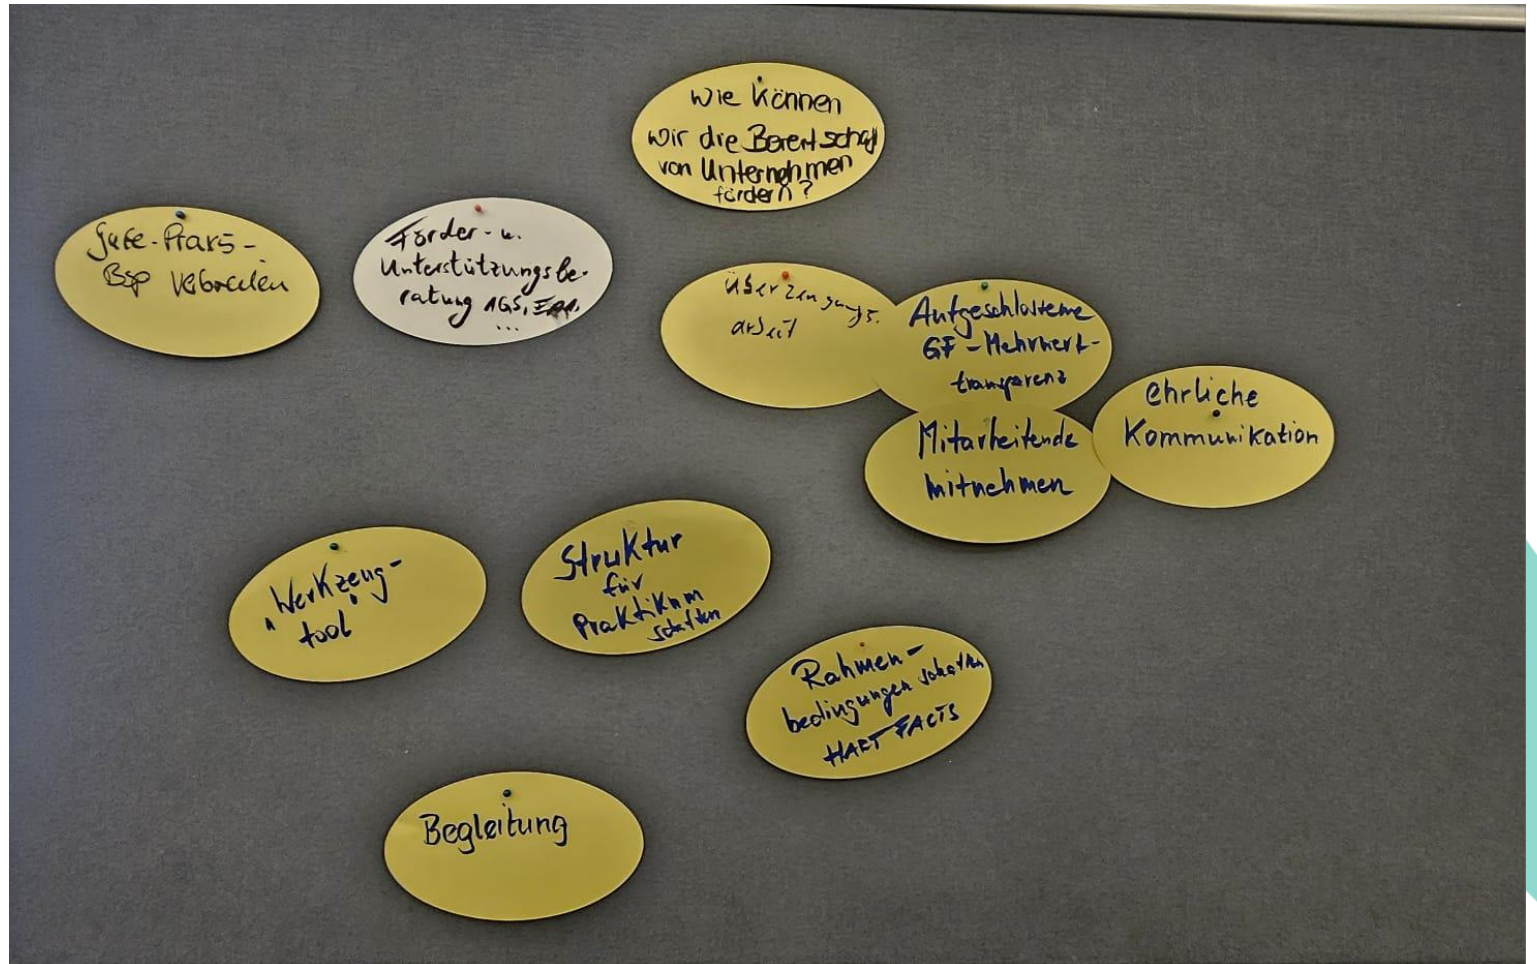 Wie können
wir die Bereitschaft
von Unternehmen
fördern?
Gute-Praxis-
Bsp verbreiten
Förder- u.
Unterstützungsbe-
ratung AGS,
...
Überzeugungs-
arbeit
Aufgeschlossene
GF - Mehrwert-
transparenz
Mitarbeitende
mitnehmen
ehrliche
Kommunikation
"Werkzeug-
tool"
Struktur
für
Praktikum
schaffen
Rahmen-
bedingungen schaffen
HART FACTS
Begleitung